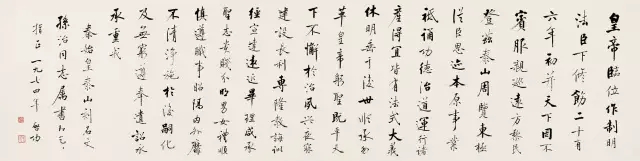 皇帝臨位作制明
法臣下修飭二十有
六年初并天下罔不
賓服親巡遠方黎民
登茲泰山周覽東極
從臣思迹本原事業
祗誦功德治道運行諸
產得宜皆有法式大義
休明垂于後世順承勿
革皇帝躬聖既平天
下不懈於治夙興夜寐
建設長利專隆教誨訓
經宣達遠近畢理咸承
聖志貴賤分明男女禮順
慎遵職事昭隔內外靡
不清淨施於後嗣化
及無窮遵奉遺詔永
承重戒
秦始皇泰山刻石文
孫治同志属書即乞
指正 一九七四年 啟功